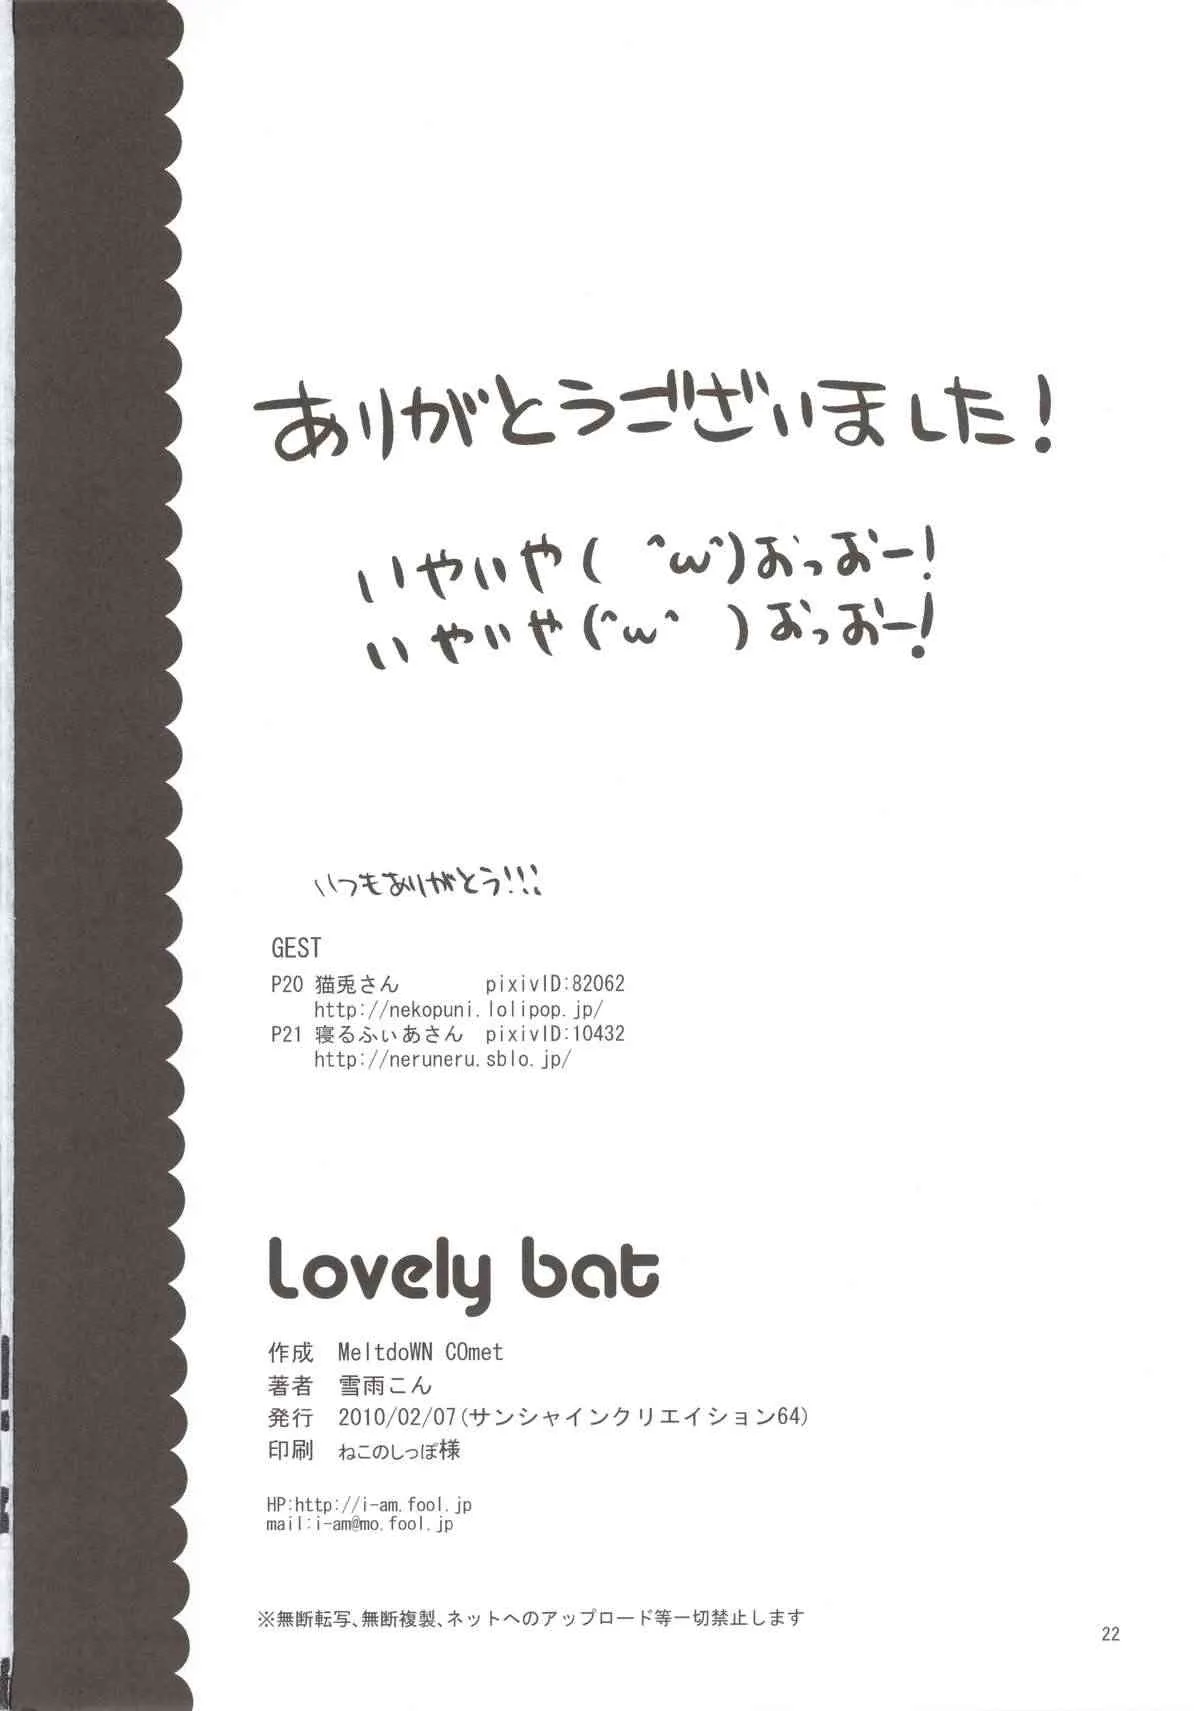 ありがとうございました!
いやいや( ^ω^)おっおー!
いやいや(^ω^ )おっおー!
いつもありがとう!!!
GEST
P20 猫兎さん pixivID:82062
http://nekopuni.lolipop.jp/
P21 寝るふぃあさん pixivID:10432
http://neruneru.sblo.jp/
Lovely bat
作成 MeltdoWN COmet
著者 雪雨こん
発行 2010/02/07(サンシャインクリエイション64)
印刷 ねこのしっぽ様
HP:http://i-am.fool.jp
mail:i-am@mo.fool.jp
※無断転写、無断複製、ネットへのアップロード等一切禁止します
22